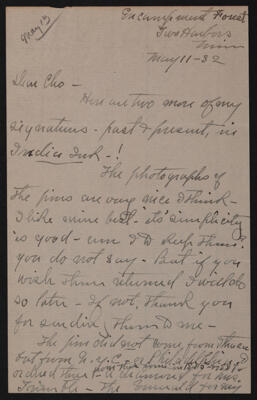 Encampment Forest
Two Harbors
Minn
May 11-32
Dear Cho -
Here are two more of my
signatures - past & present, in
India Ink - !
The photographs of
the pins are very nice I think -
I like mine best - its simplicity
is good - am I to keep them?
you do not say - But if you
wish them returned I will do
so later - If not, thank you
for sending them to me -
The pin did not come from
out from N.Y.C. -
ordered
The Emerald for my